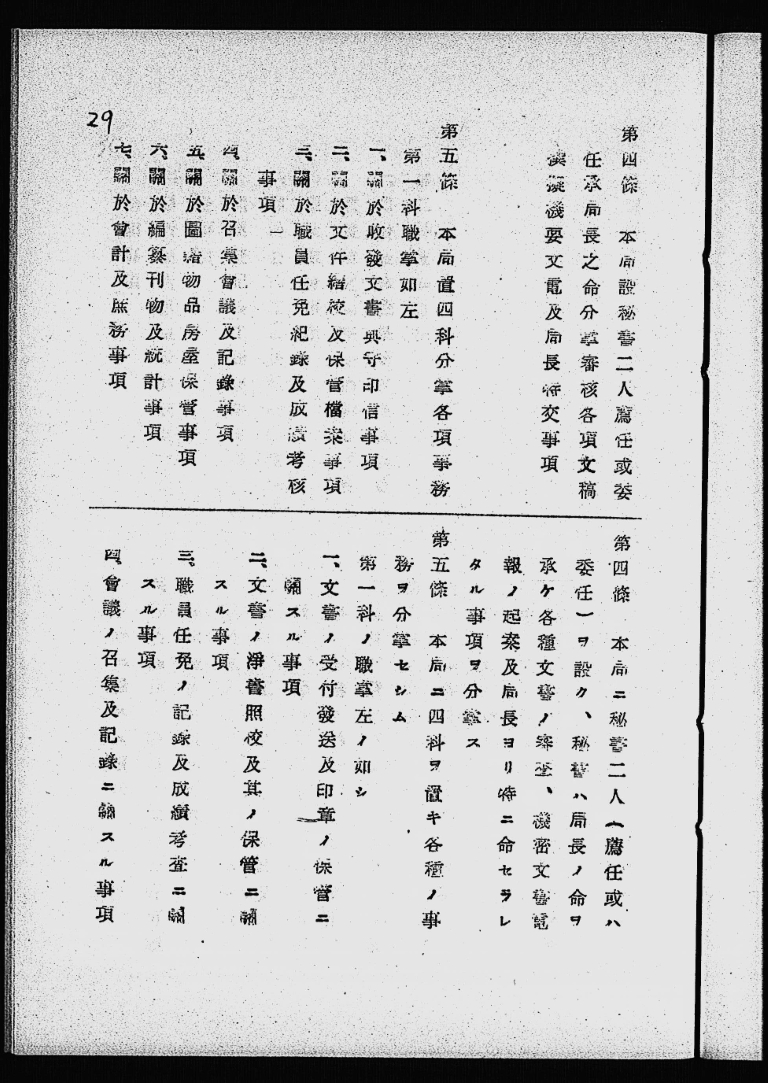 第四條 本局設秘書二人薦任或委
任承局長之命分掌審核各項文稿
撰擬機要文電及局長特交事項
第五條 本局置四科分掌各項事務
第一科職掌如左
一、關於收發文書典守印信事項
二、關於文件繕校及保管檔案事項
三、關於職員任免紀錄及成績考核
事項
四、關於召集會議及記錄事項
五、關於圖書物品房屋保管事項
六、關於編纂刊物及統計事項
七、關於會計及庶務事項
29
第四條 本局ニ秘書二人(薦任或ハ
委任)ヲ設ク、秘書ハ局長ノ命ヲ
承ケ各種文書ノ審查、機密文書電
報ノ起案及局長ヨリ特ニ命セラレ
タル事項ヲ分掌ス
第五條 本局ニ四科ヲ置キ各種ノ事
務ヲ分掌セシム
第一科ノ職掌左ノ如シ
一、文書ノ受付發送及印章ノ保管ニ
關スル事項
二、文書ノ淨書照校及其ノ保管ニ關
スル事項
三、職員任免ノ記錄及成績考查ニ關
スル事項
四、會議ノ召集及記錄ニ關スル事項